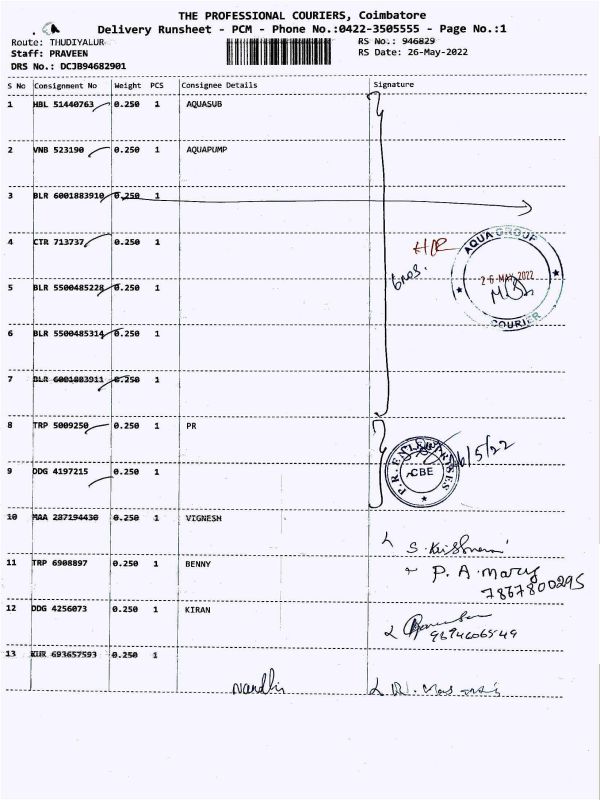 THE PROFESSIONAL COURIERS, Coimbatore
Delivery Runsheet - PCM - Phone No.:0422-3505555 - Page No.:1
Route: THUDIYALUR
RS No.: 946829
Staff: PRAVEEN
RS Date: 26-May-2022
DRS No.: DCJB94682901
S No Consignment No Weight PCS Consignee Details Signature
1 HBL 51440763 0.250 1 AQUASUB
2 VNB 523190 0.250 1 AQUAPUMP
3 BLR 6001883910 0.250 1
4 CTR 713737 0.250 1
AQUA GROUP
26 MAY 2022
COURIER
5 BLR 5500485228 0.250 1
6 BLR 5500485314 0.250 1
7 BLR 6001883911 0.250 1
8 TRP 5009250 0.250 1 PR
P.R. ENTERPRISES
CBE
26/5/22
9 DDG 4197215 0.250 1
10 MAA 287194430 0.250 1 VIGNESH
11 TRP 6908897 0.250 1 BENNY
P. A. Mary
7867800295
12 DDG 4256073 0.250 1 KIRAN
9694606549
13 KUR 693657593 0.250 1
Nandhi